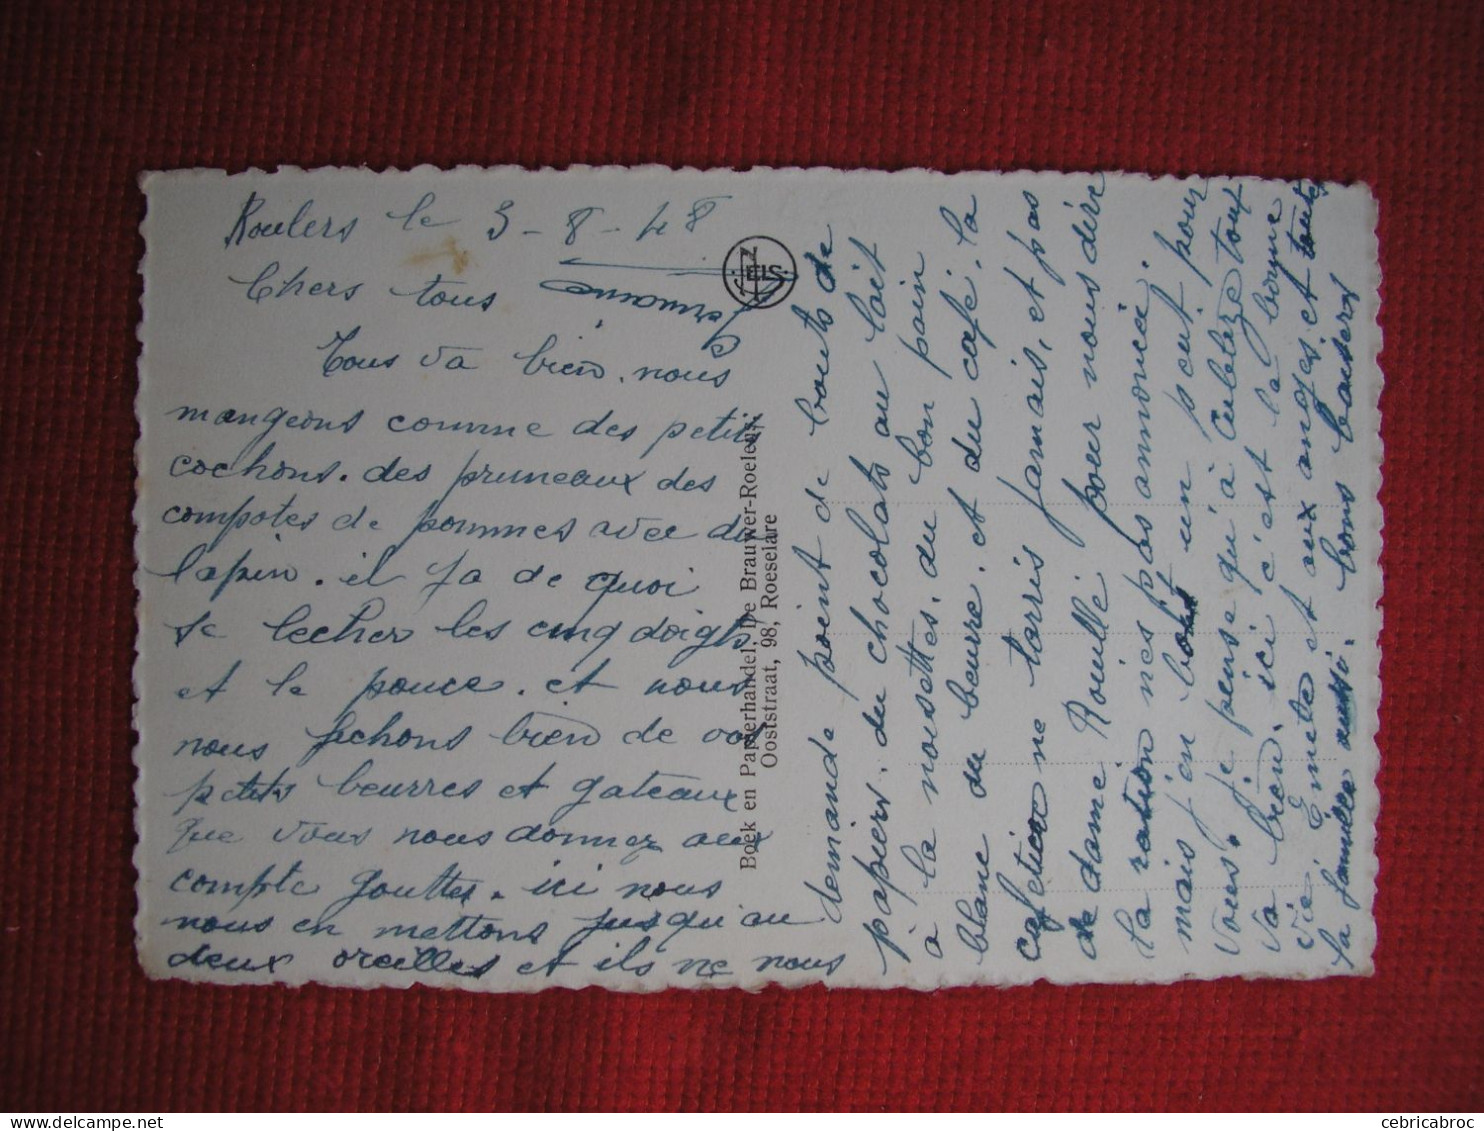 Roulers le 3-8-48
Chers tous
Germaine
Tous va bien. nous
mangeons comme des petits
cochons. des pruneaux des
compotes de pommes avec du
lapin. il ya de quoi
se lecher les cinq doigts
et le pouce. et nous
nous fichons bien de vos
petits beurres et gateaux
que vous nous donnez aux
compte gouttes. ici nous
nous en mettons jusqu'au
deux oreilles et ils ne nous
demande point de bouts de
papiers. du chocolats au lait
à la noisettes. du bon pain
blanc du beurre. et du café. la
cafetière ne tarris jamais. et pas
de dame Rouillé pour nous dire
la ration n'es pas annoncé.
mais j'en bois un peut pour
vous. Je pense qu'à tout
va bien. ici c'est la bonne
vie et aux anges et toute
la famille aussi. bons baisers
NELS
Boek en Papierhandel, De Brauwer-Roelens,
Ooststraat, 98, Roeselare
cebricabroc